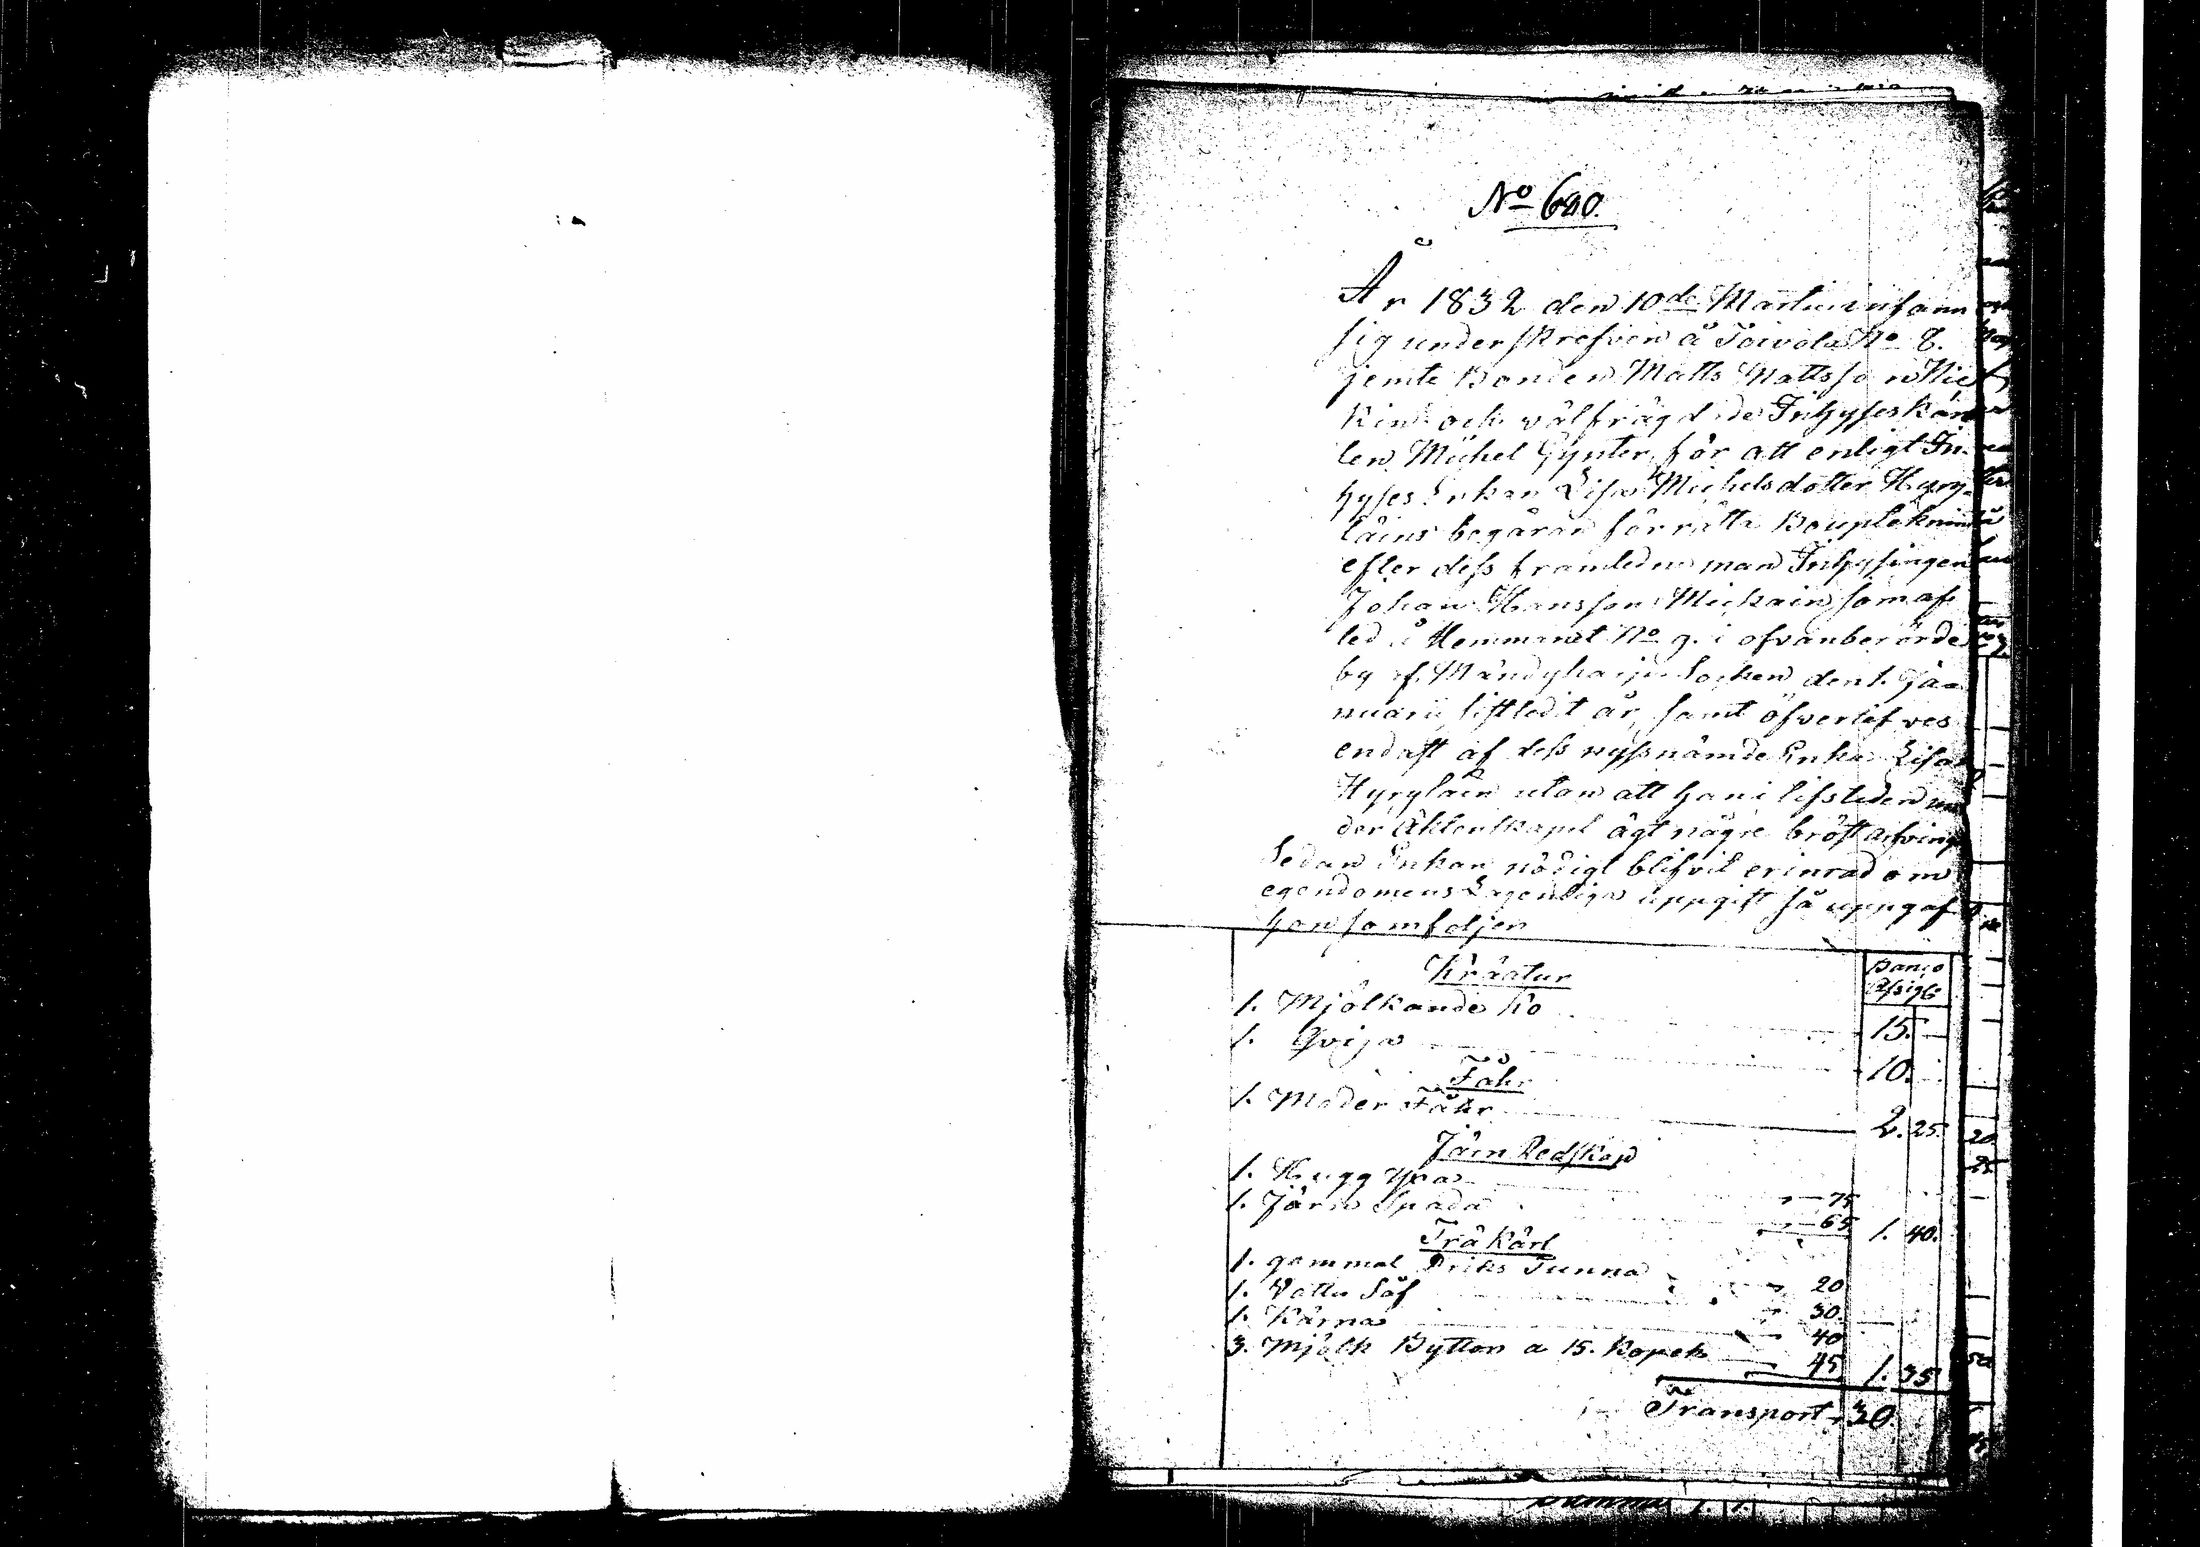 No 680.
År 1832 den 10de Martii infann
sig underskrefven å Toivola No 8.
jemte Bonden Matts Mattsson Nie
kin och välfrägdade Inhyseskar
len Michel Gynter, för att enligt In-
hyses Enkan Lisa Michelsdotter Hyry-
läins begäran förrätta Bouptekning
efter dess framledne man Inhysingen
Johan Hansson Mickain som af
led å Hemmanet No 9. i ofvanberörde
by af Mändyharju Socken den 1. Ja-
nuarii sistledit år, samt öfverlefves
endast af dess nyssnämde Enka Lisa
Hyryläin utan att han i lifstiden un
der Äktenskapet ägt någre bröstarfving
Sedan Enkan nödigt blifvit erinrad om
egendomens Lagenliga uppgift så uppgaf
hon som följer
Kräatur
Banco Assigt:
1. Mjölkande Ko 15. —
1. Qviga 10. —
Fåhr
1. Moder Fåhr 2. 25.
Järn Redskap
1. Hugg Yxa 75
1. Järn Spada 65 1. 40.
Trä Kärl
1. gammal Driks Tunna 20
1. Vattu Såf 30.
1. Kärna 40
3. Mjölk Bytton a 15. Kopek 45 1. 35
Transport 30.
Summa